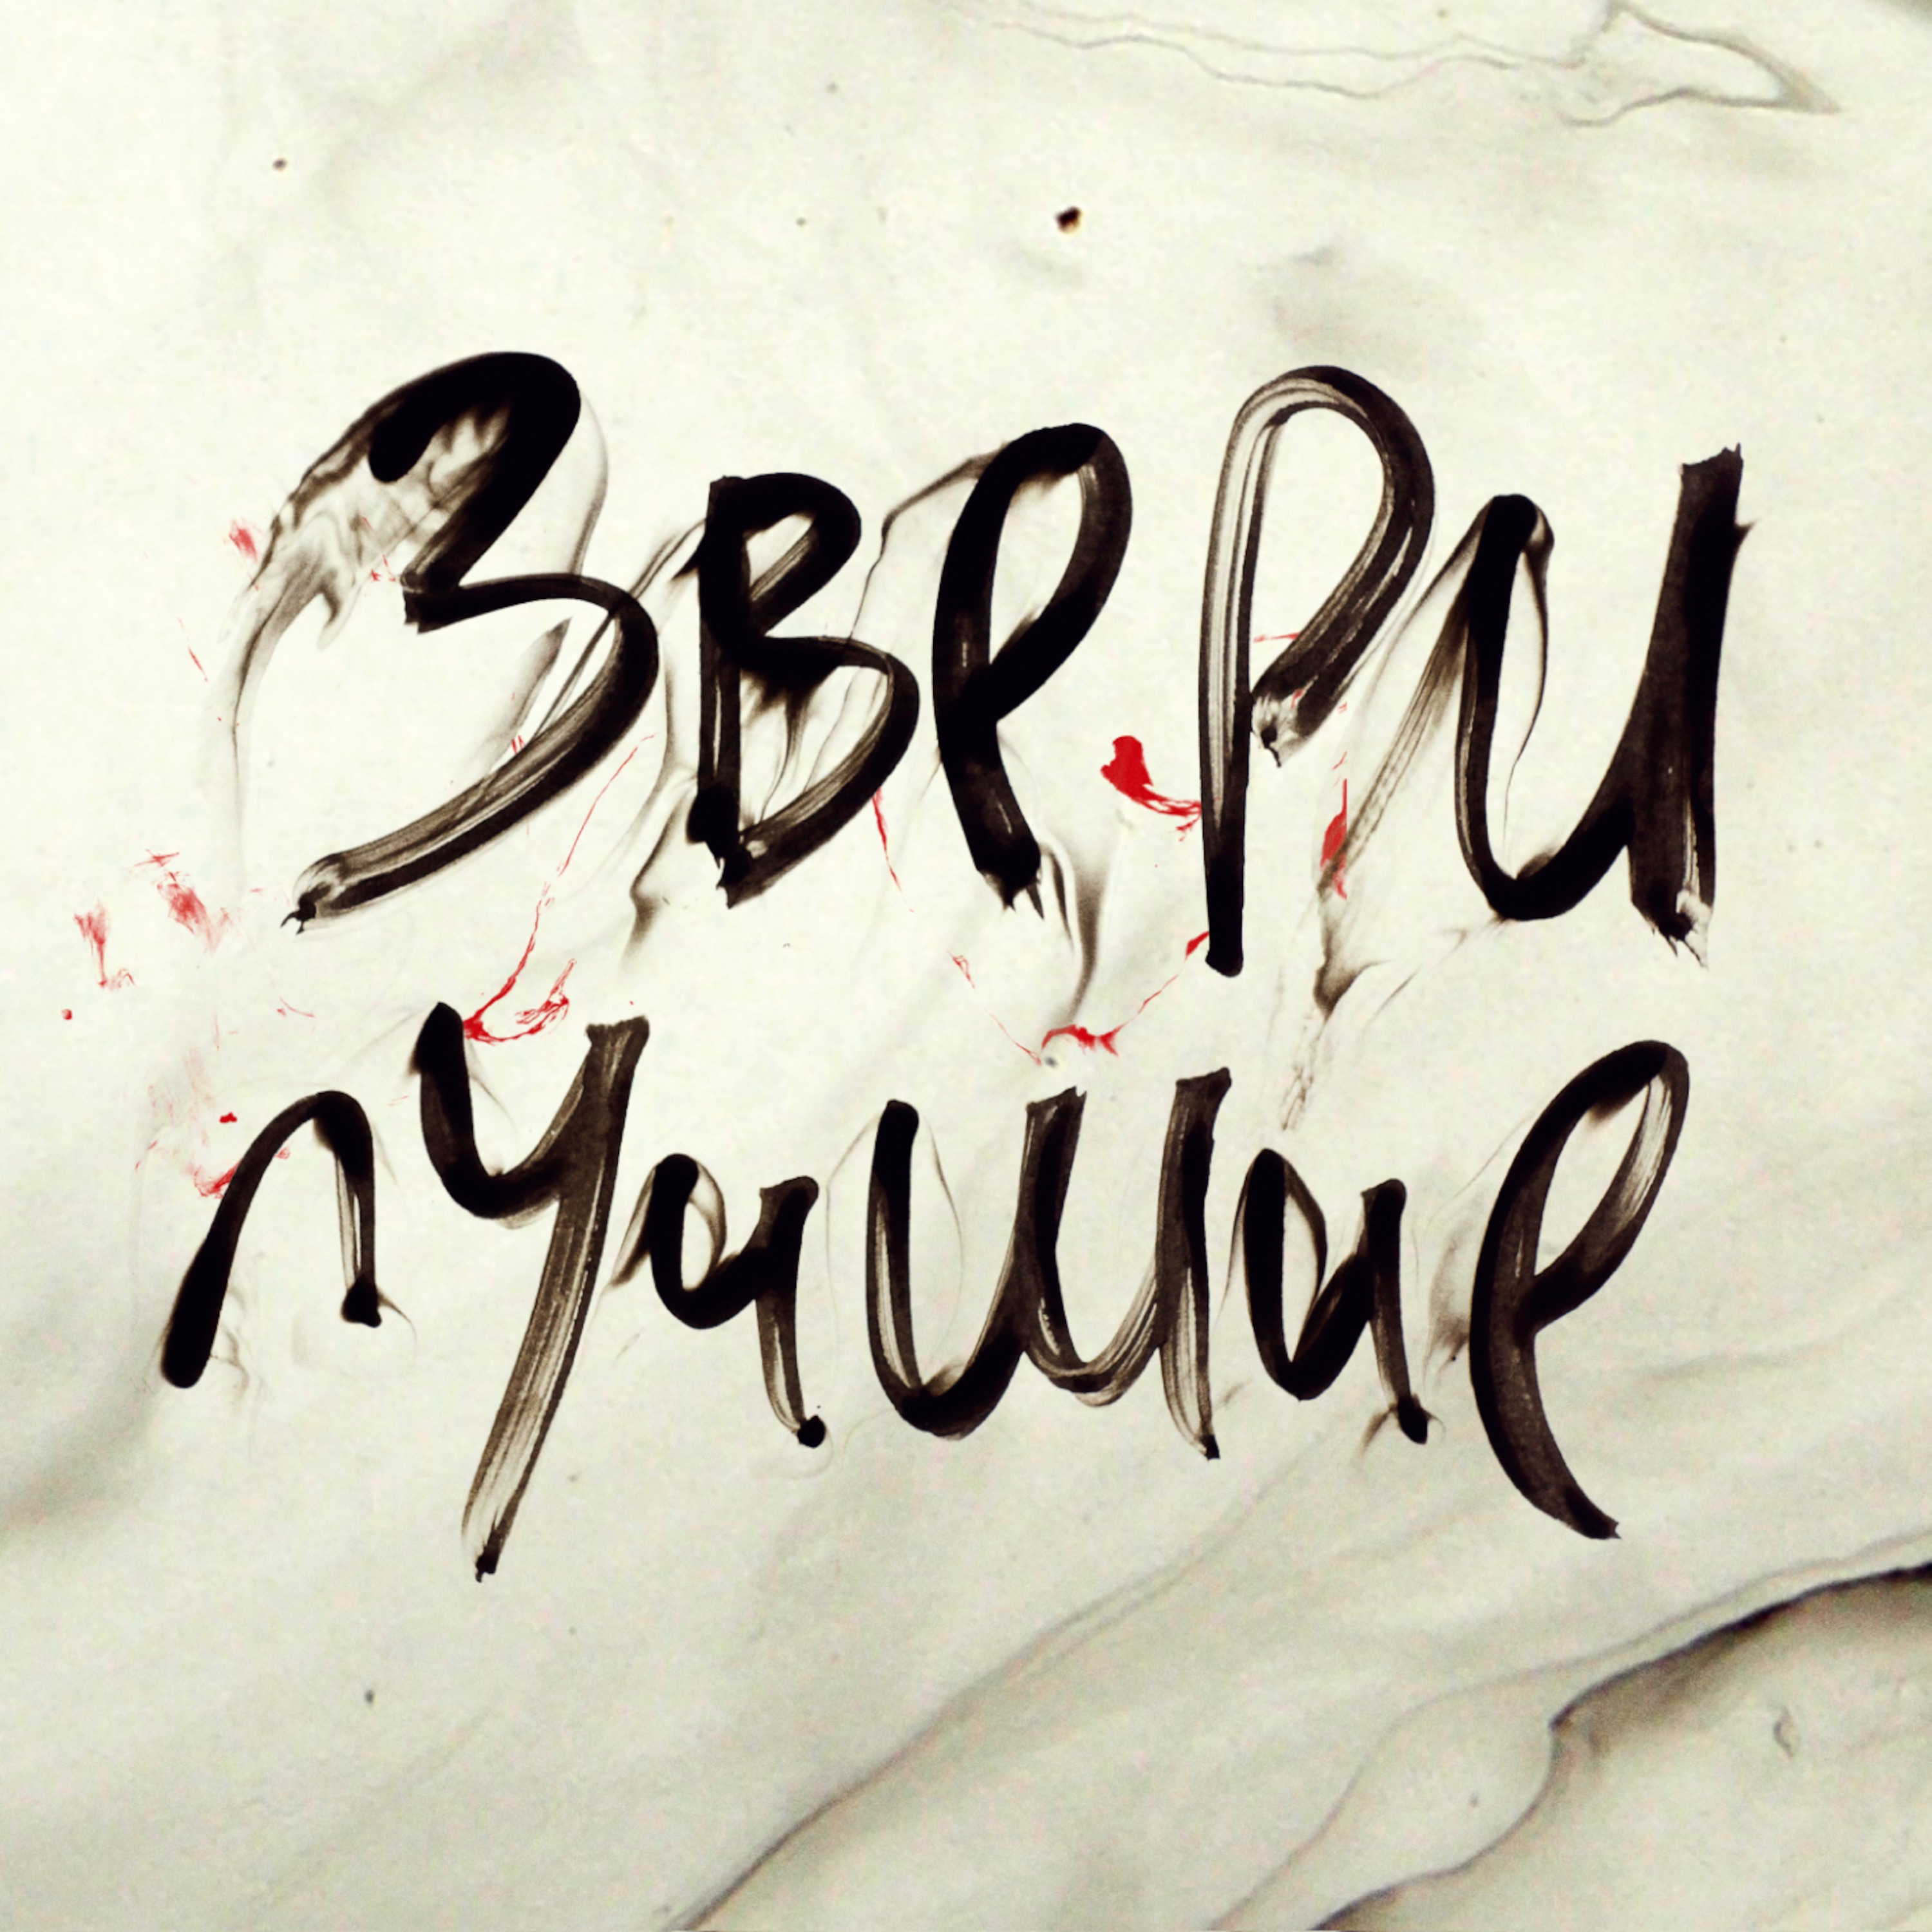 Звери
лучшие